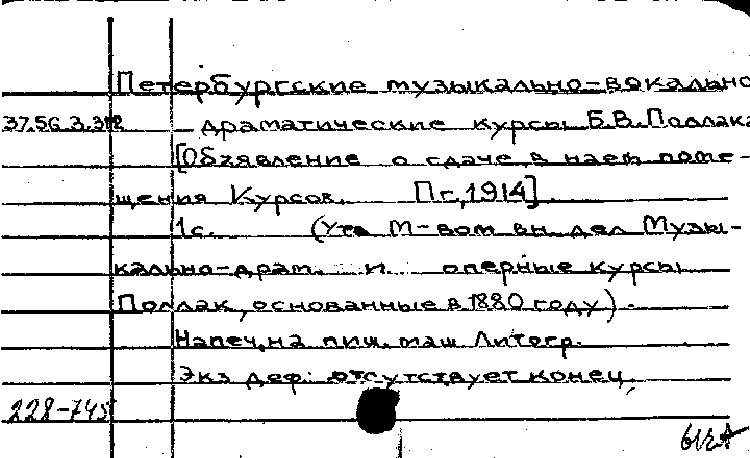 Петербургские музыкально-вокально
37.56.3.312
драматические курсы Б.В.Поллака
[Объявление о сдаче в наем поме-
щения Курсов. Пг.,1914].
1с. (Утв М-вом вн. дел Музы-
кально-драм. и оперные курсы
Поллак, основанные в 1880 году).
Напеч. на пиш. маш Литогр.
Экз деф.: отсутствует конец.
228-745